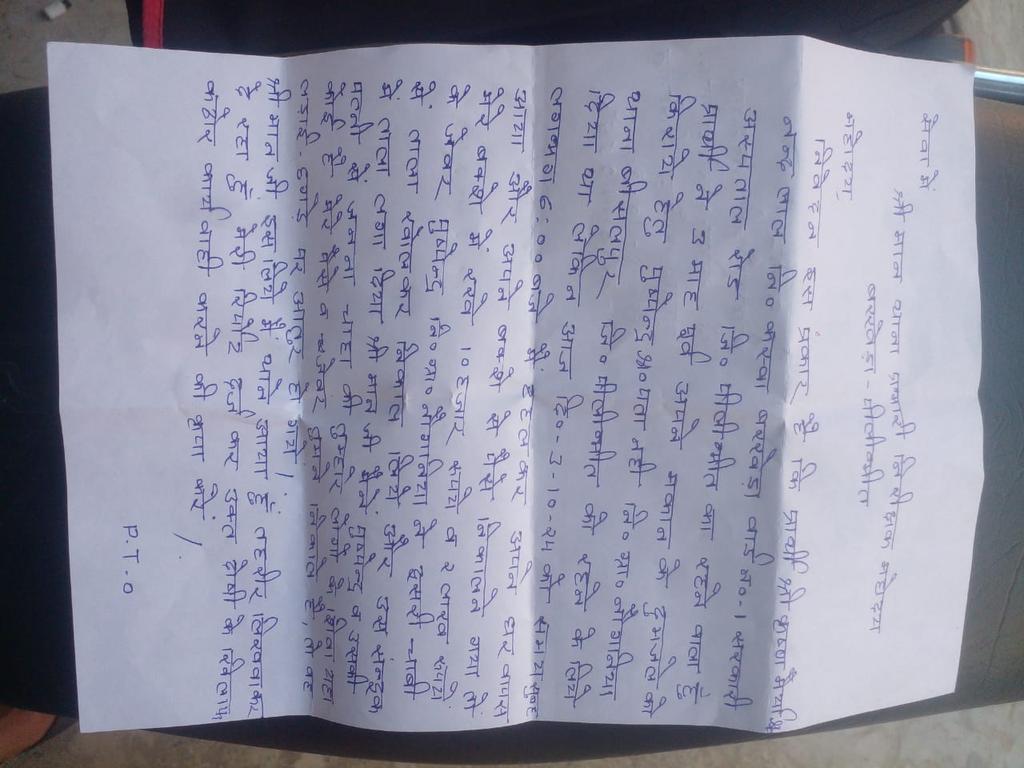 सेवा में
श्री मान थाना प्रभारी निरीक्षक महोदय
बरखेड़ा - पीलीभीत
महोदय
निवेदन इस प्रकार है कि प्रार्थी श्री
लाल नि० कस्वा बरखेड़ा वार्ड न०-1 सरकारी
अस्पताल रोड जि० पीलीभीत का रहने वाला हूँ
प्रार्थी ने 3 माह पूर्व अपने मकान के दुमंजिले को
किराये हेतु पुष्पेन्द्र पता नही नि० ग्रा० नौगमिया
थाना बीसलपुर जि० पीलीभीत को रहने के लिए
दिया था लेकिन आज दि०-3-10-24 को समय सुबह
लगभग 6:00 बजे मैं टहल कर अपने घर वापस
आया और अपने बक्शे से पैसे निकालने गया तो
मेरे बक्शे में रखे 10 हजार रूपये व 2 लाख रूपये
के जेवर पुष्पेन्द्र नि० ग्रा० नौगमिया ने दूसरी चाबी
से ताला खोलकर निकाल लिये और उस सन्दूक
में ताला लगा दिया श्री मान जी मैंने पुष्पेन्द्र व उसकी
पत्नी से जानना चाहा की तुम्हारे अलावा यहा
कोई है मेरे पैसे व जेवर तुमने निकाले है, तो वह
लड़ाई-झगड़े पर आतुर हो गये।
श्री मान जी इसलिये मैं थाने आया हूँ तहरीर लिखवाकर
दे रहा हूँ मेरी रिपोर्ट दर्ज कर उक्त दोषी के खिलाफ
कठोर कार्यवाही करने की कृपा करें
P.T.O